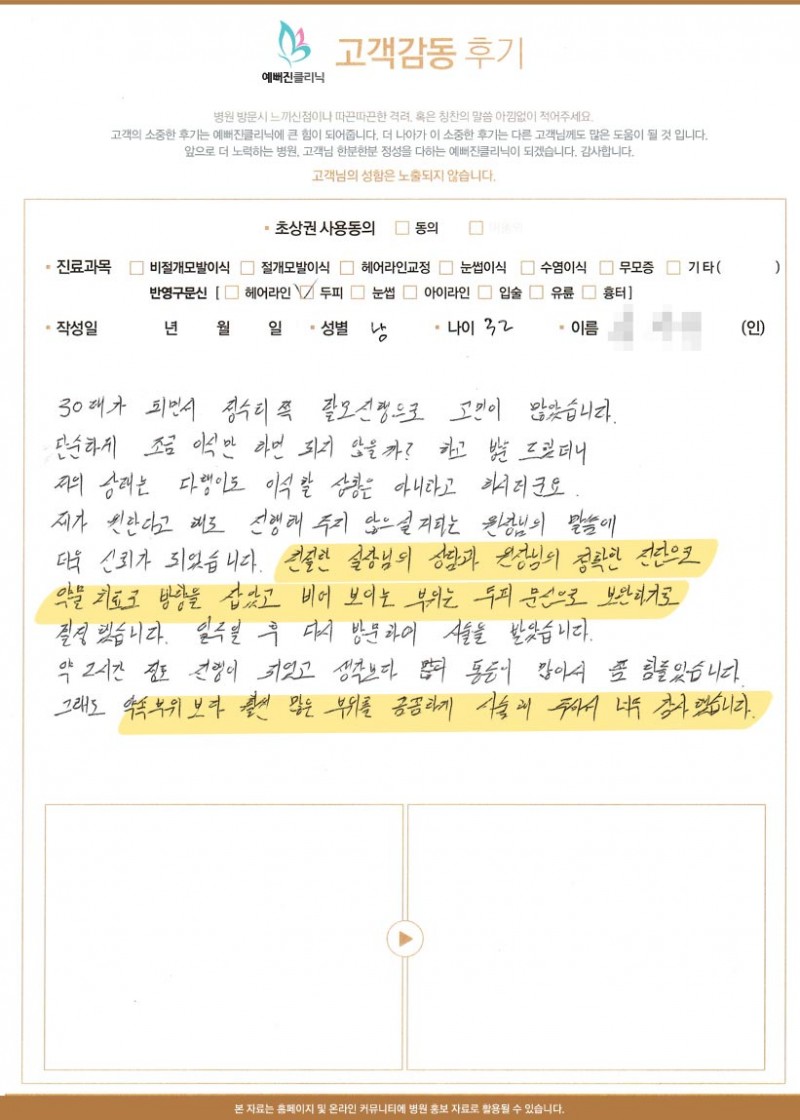 예뻐진클리닉
고객감동 후기
병원 방문시 느끼신점이나 따끈따끈한 격려, 혹은 칭찬의 말씀 아낌없이 적어주세요.
고객의 소중한 후기는 예뻐진클리닉에 큰 힘이 되어줍니다. 더 나아가 이 소중한 후기는 다른 고객님께도 많은 도움이 될 것 입니다.
앞으로 더 노력하는 병원, 고객님 한분한분 정성을 다하는 예뻐진클리닉이 되겠습니다. 감사합니다.
고객님의 성함은 노출되지 않습니다.
초상권 사용동의 동의
진료과목 비절개모발이식 절개모발이식 헤어라인교정 눈썹이식 수염이식 무모증 기타( )
반영구문신 [ 헤어라인 두피 눈썹 아이라인 입술 유륜 흉터 ]
작성일 년 월 일 성별 남 나이 32 이름 (인)
30대가 되면서 정수리쪽 탈모진행으로 고민이 많았습니다.
단순하게 조금 이식만 하면 되지 않을까? 하고 방문 드렸더니
저의 상태는 다행이도 이식할 상황은 아니라고 하시더군요.
제가 원한다고 해도 진행해 주지 않으실거라는 원장님의 말씀에
더욱 신뢰가 되었습니다. 친절한 실장님의 상담과 원장님의 정확한 진단으로
약물 치료로 방향을 잡았고 비어 보이는 부위는 두피 문신으로 보완하기로
결정했습니다. 일주일 후 다시 방문하여 시술을 받았습니다.
약 2시간 정도 진행이 되었고 생각보다 통증이 많아서 좀 힘들었습니다.
그래도 약속부위 보다 훨씬 많은 부위를 꼼꼼하게 시술해 주셔서 너무 감사했습니다.
본 자료는 홈페이지 및 온라인 커뮤니티에 병원 홍보 자료로 활용될 수 있습니다.